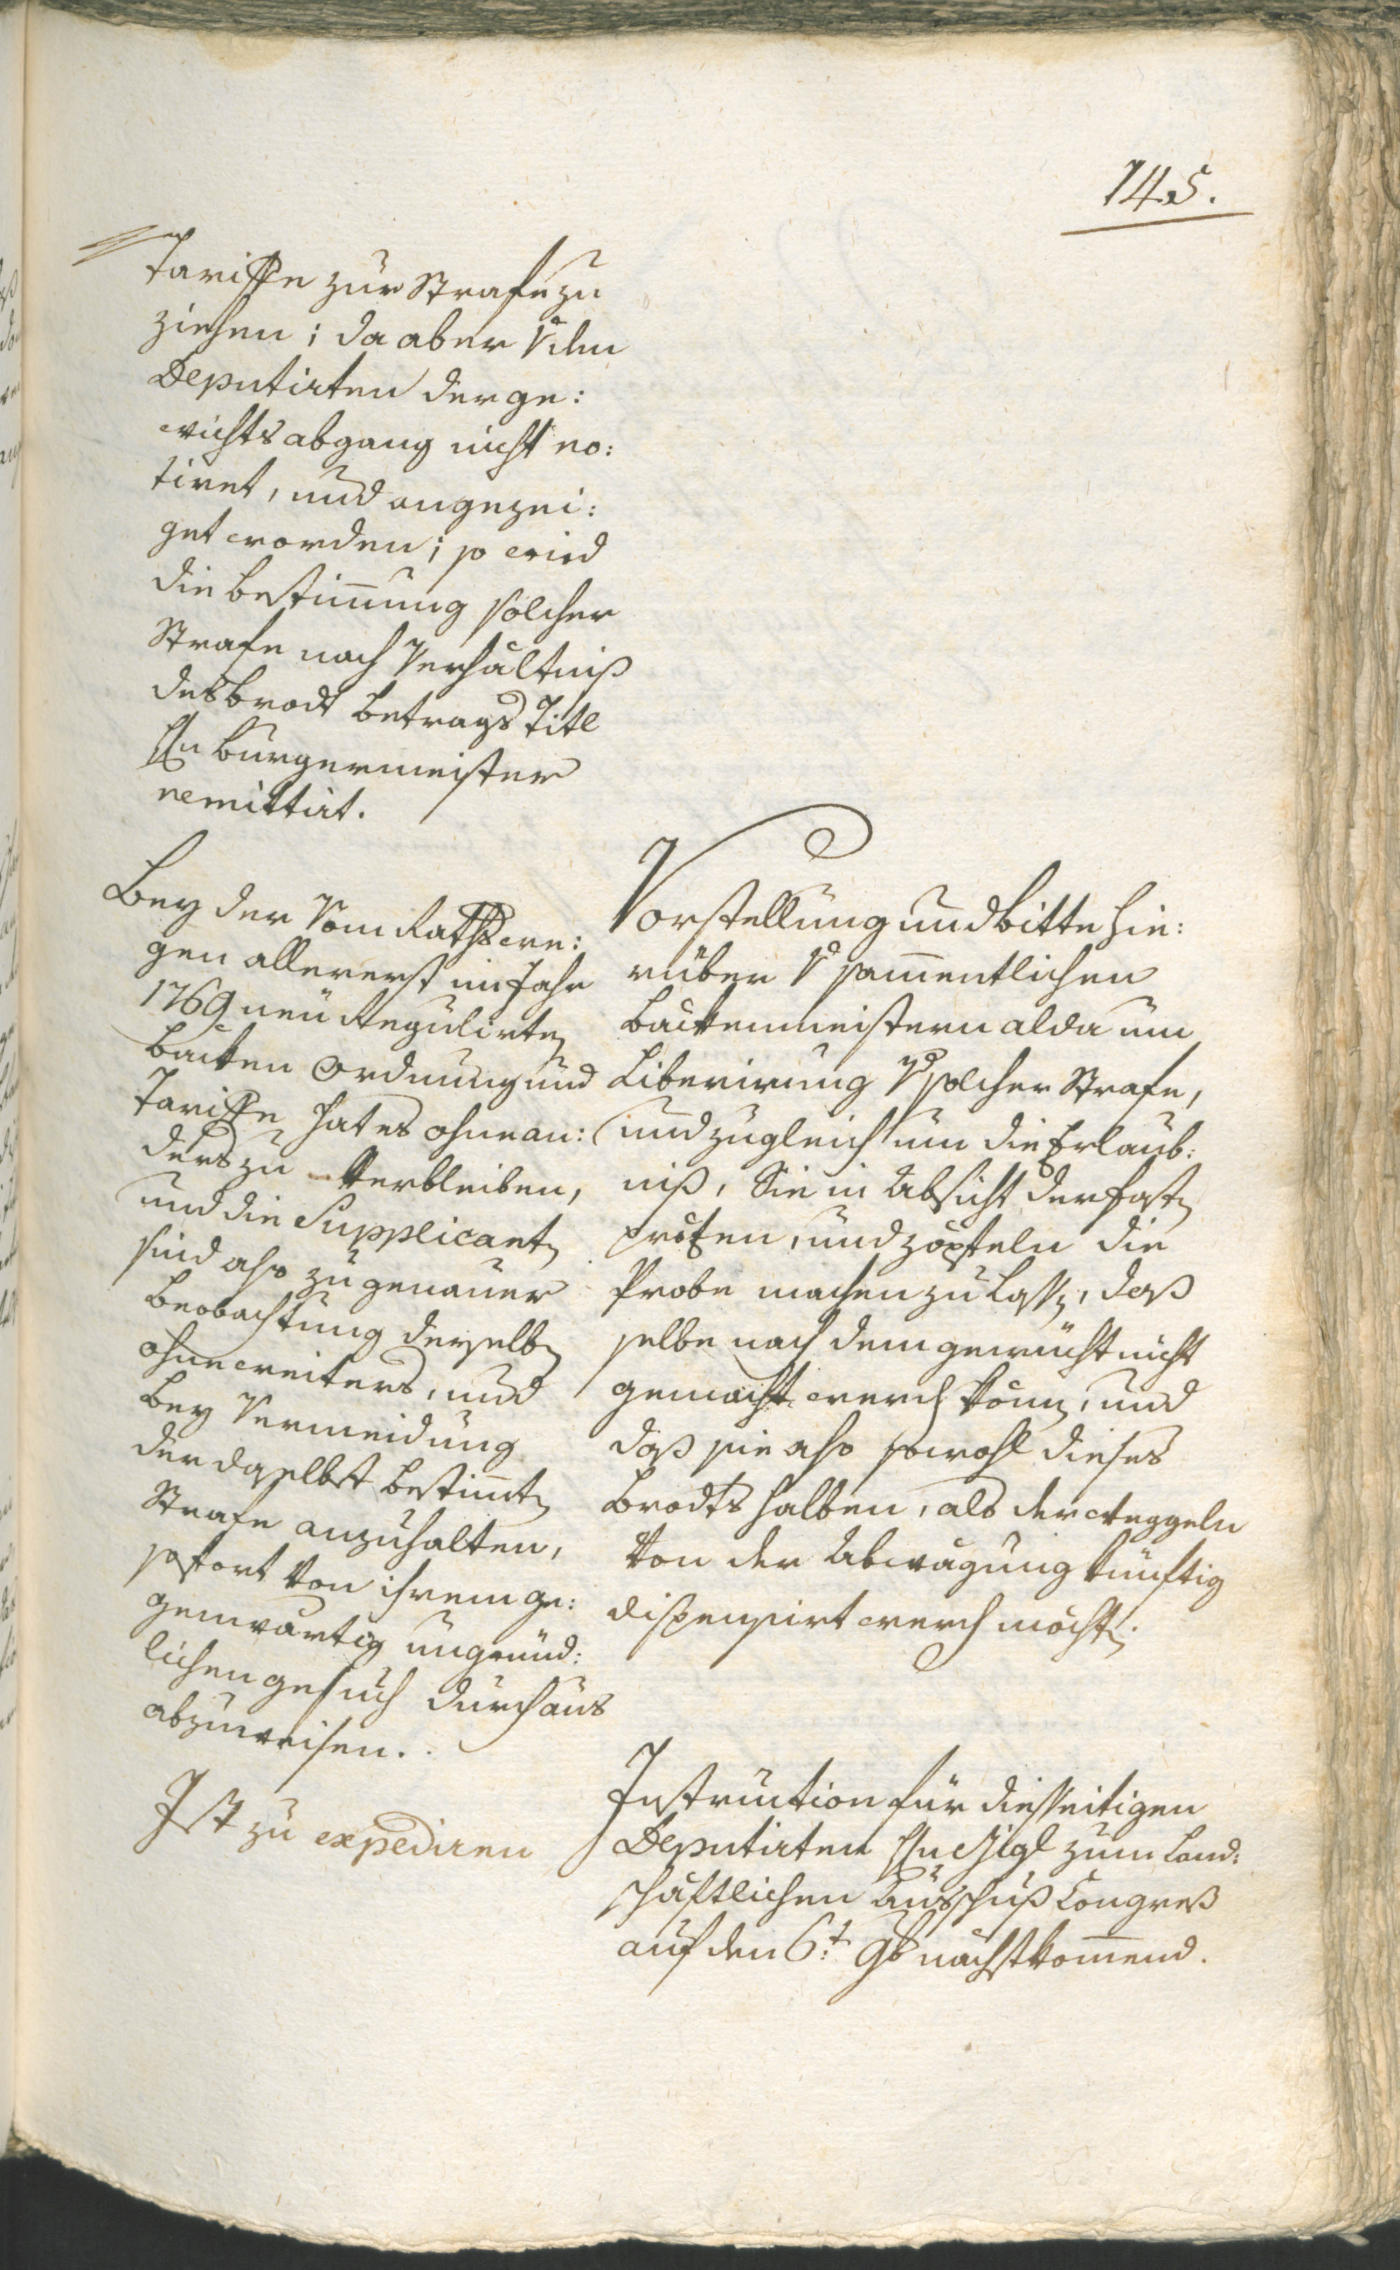 145.
Tariffe zur Strafe zu
ziehen; da aber von den
Deputirten der ge:
wichts abgang nicht no:
tiret, und angezei:
get worden; so wird
die bestim̅ung solcher
Strafe nach Verhältniß
des brodt betrags Titl
Hn burgermeister
remittirt.
Bey der Vom Raths we:
gen allererst im Jahr
1769 neu Regulirten
backen ordnung und
Tariffe hat es ohne an:
ders zu verbleiben,
und die Supplicanten
sind also zu genauer
beobachtung derselben
ohne weiters, und
bey Vermeidung
der daselbst bestim̅ten
Strafe anzuhalten,
sofort von ihrem ge:
genwärtig ungründ:
lichen gesuch durchaus
abzuweisen.
Vorstellung und bitte hie:
rüber von sam̅entlichen
backenmeistern alda um
Liberirung von solcher Strafe,
und zugleich um die Erlaub:
niß, Sie in Absicht der fasten
preten, und zöpfeln die
Probe machen zu lassen, daß
selbe nach dem gewücht nicht
gemacht werden könen, und
daß sie also sowohl dieses
brodts halben, als der weggeln
von der Abwägung künftig
dispensirt werden möchten.
Ist zu expediren
Instruction für diesseitigen
Deputirten Hn Gigl zum Land:
schäftlichen Ausschuß Congreß
auf den 6t: 9b nächstkom̅end.